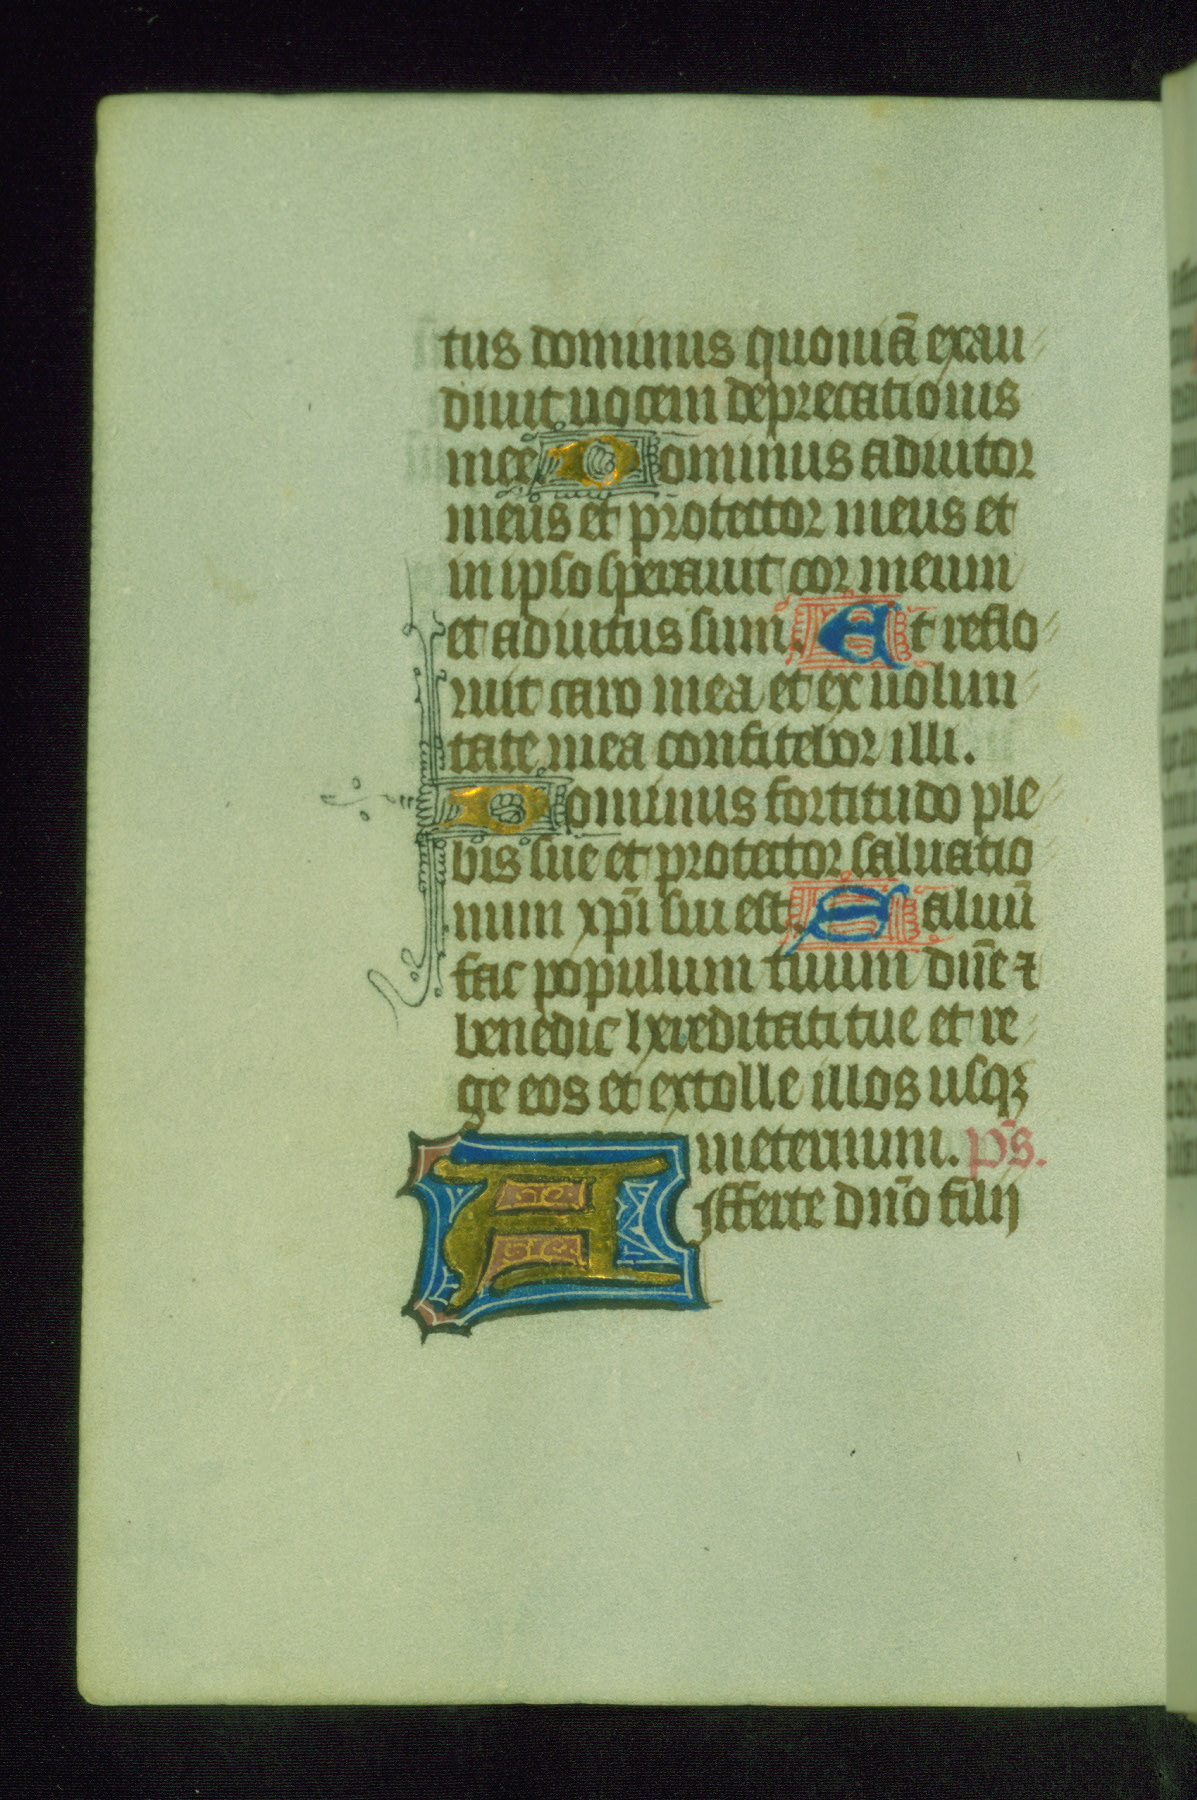 tus dominus quoniā exau
diuit uocem deprecationis
mee Dominus adiutor
meus et protector meus et
in ipso sperauit cor meum
et adiutus sum. Et reflo
ruit caro mea et ex uolun
tate mea confitebor illi.
Dominus fortitudo ple
bis sue et protector saluatio
num xp̄i sui est. Saluū
fac populum tuum dn̄e ⁊
benedic hereditati tue et re
ge eos et extolle illos usqꝫ
ineternum. p̄s.
Afferte dn̄o filij